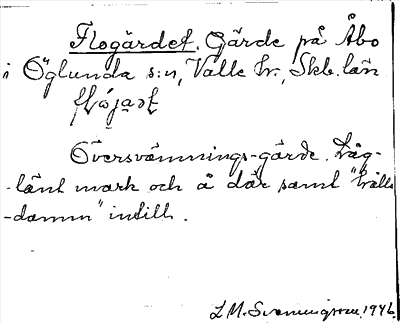 Flogärdet. Gärde på Åbo
i Öglunda s:n, Valle hr., Skb. län
Översvämnings-gärde. Låg-
-länt mark och å där samt "kvills
-damm" intill.
L M. Svenningson. 1946.